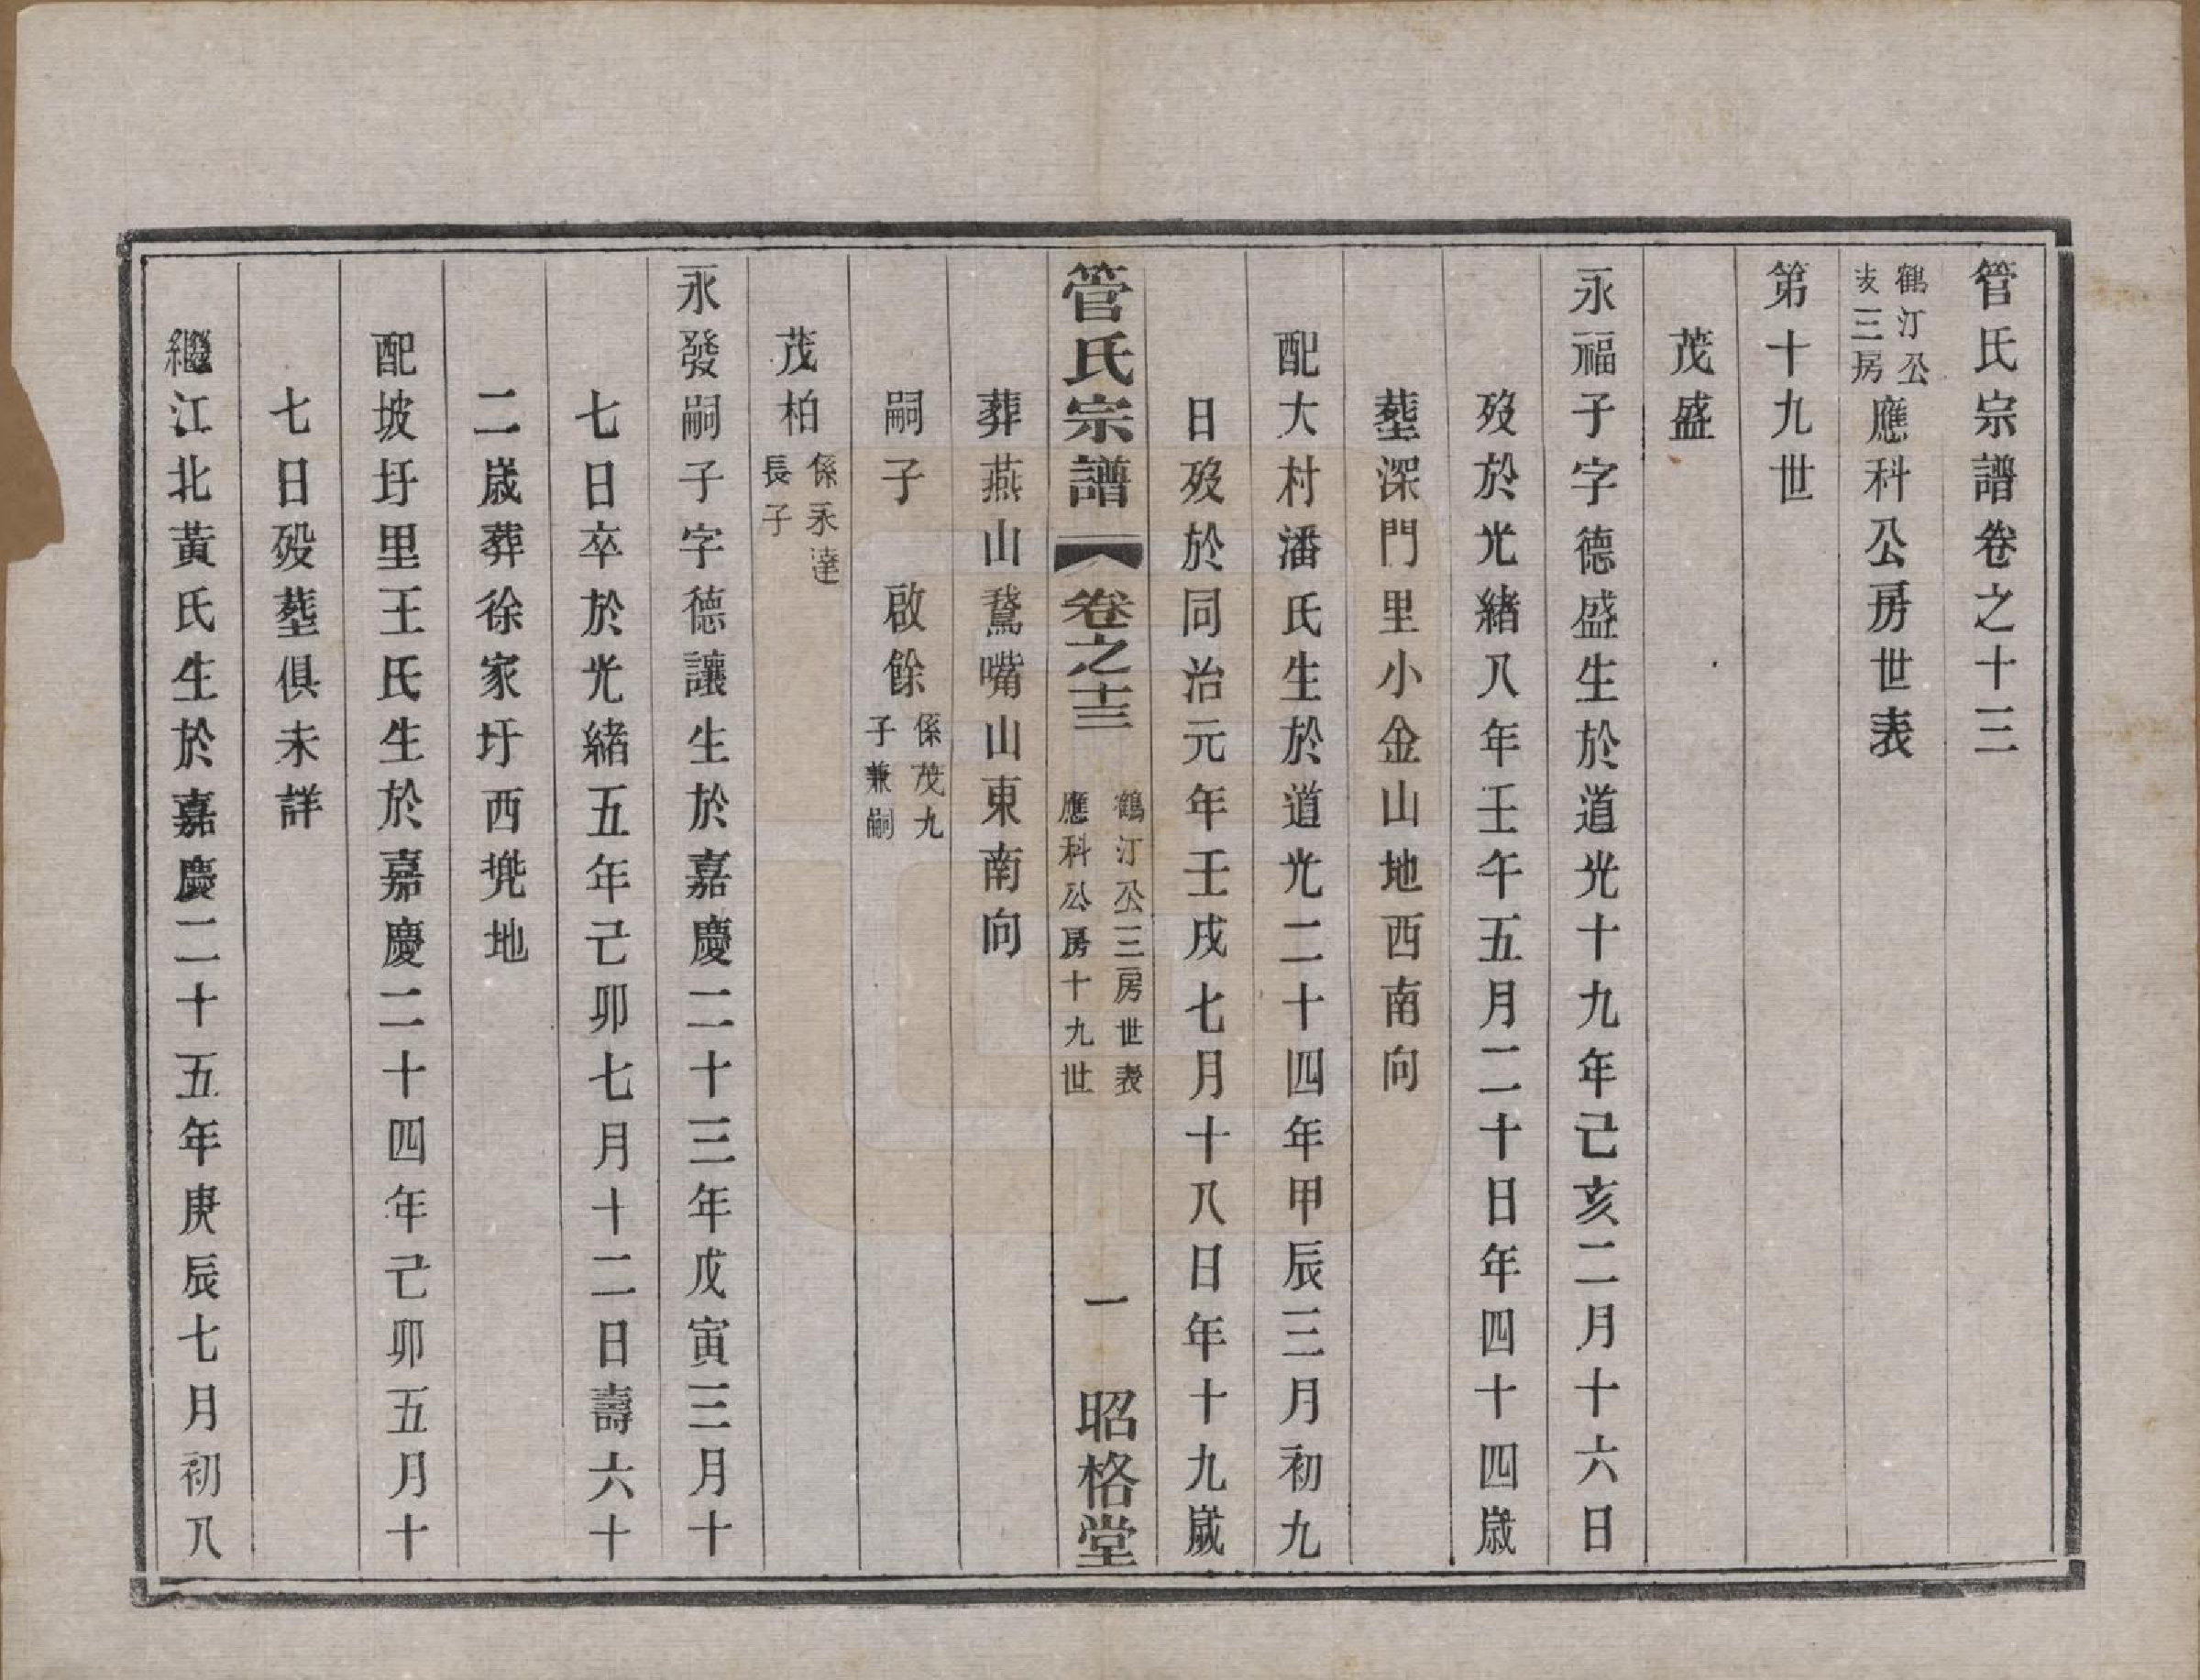 管氏宗譜卷之十三
鶴汀公支三房應科公房世表
第十九世
茂盛
永福子字德盛生於道光十九年己亥二月十六日
歿於光緒八年壬午五月二十日年四十四歲
塟深門里小金山地西南向
配大村潘氏生於道光二十四年甲辰三月初九
日歿於同治元年壬戌七月十八日年十九歲
管氏宗譜 卷之十三 鶴汀公三房世表應科公房十九世 一 昭格堂
葬燕山鵞嘴山東南向
嗣子 啟餘係茂九子兼嗣
茂柏係永達長子
永發嗣子字德讓生於嘉慶二十三年戊寅三月十
七日卒於光緒五年己卯七月十二日壽六十
二歲葬徐家圩西挑地
配坡圩里王氏生於嘉慶二十四年己卯五月十
七日歿塟俱未詳
繼江北黃氏生於嘉慶二十五年庚辰七月初八